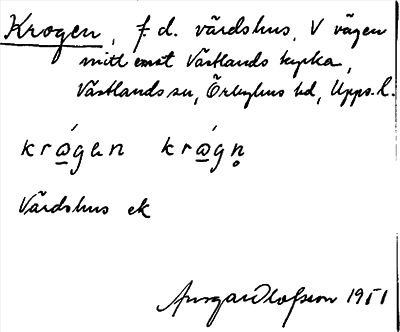 Krogen, f.d. värdshus, V vägen
mitt emot Västlands kyrka,
Västlands sn, Örbyhus hd, Upps. l.
krǻgen krǻgn̥
Värdshus ek
Ansgar Olofsson 1951